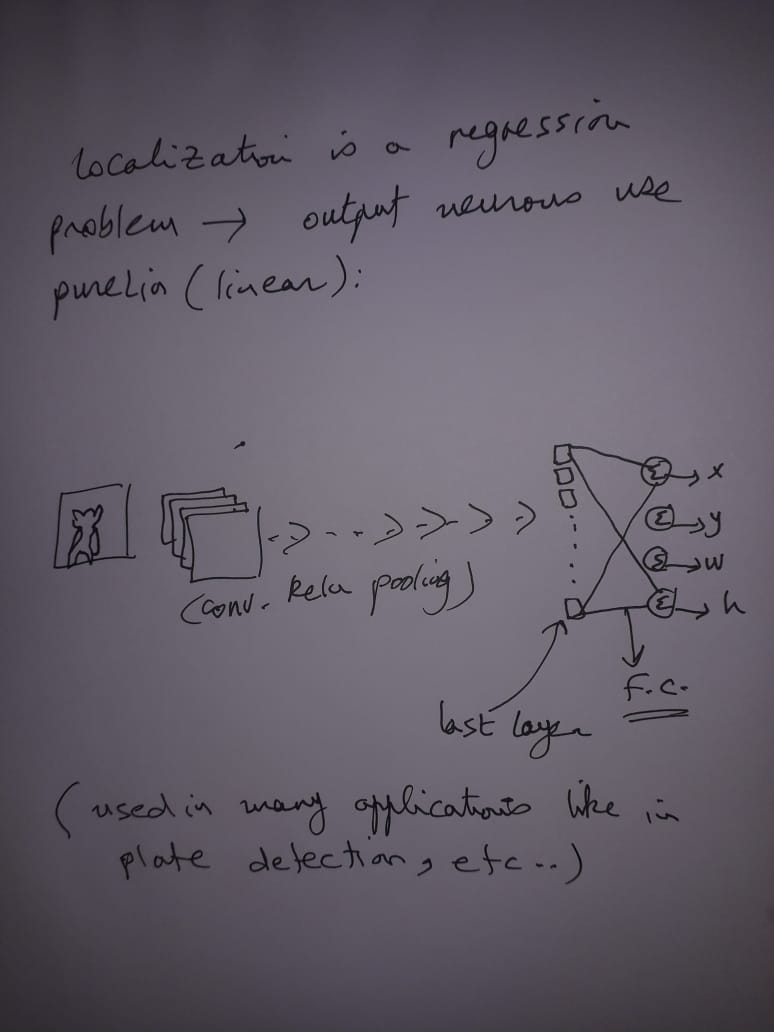 localization is a regression
problem → output neurons use
purelin (linear):
Σ → x
Σ → y
Σ → w
Σ → h
(conv. Relu pooling)
F.C.
last layer
(used in many applications like in
plate detection, etc..)